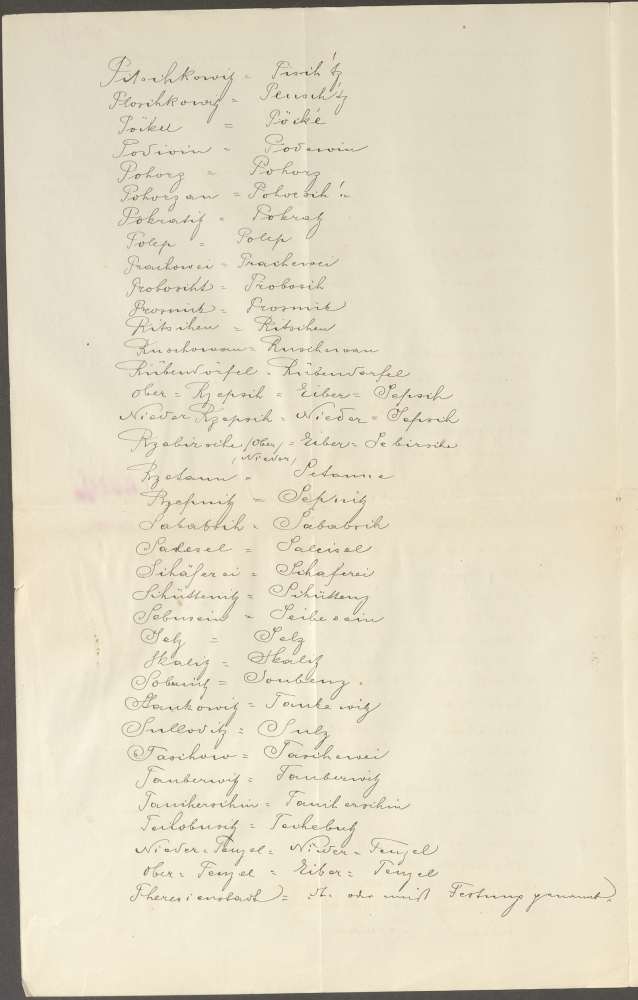 Pitschkowitz = Pisch'tz
Ploschkowitz = Peusch'tz
Pöckel = Pöcké
Podiwin = Podewin
Pohorz = Pohorz
Pohorzan = Pohorsch'n
Pokratitz = Pokratz
Polep = Polep
Prachowei = Prachewei
Proboscht = Probosch
Prosmik = Prosmik
Ritschen = Ritschen
Ruschowan = Ruschewan
Rübendörfel = Rübendarfel
Ober = Rzepsch = Eiber = Sepsch
Nieder Rzepsch = Nieder = Sepsch
Rzebirsche (Ober) = Eiber = Sebirsche
(Nieder)
Rzetaun = Setaune
Rzepnitz = Sepnitz
Sababsch = Sababsch
Salesel = Saleisel
Schäferei = Schaferei
Schüttenitz = Schüttenz
Sebusein = Seibesein
Selz = Selz
Skalitz = Skalitz
Sobenitz = Soubenz.
Stankowitz = Tankewitz
Sulloditz = Sulz
Taschow = Taschewei
Tauberwitz = Tauberwitz
Tauchorschin = Taucherschin
Techobusitz = Techebutz
Nieder = Tenzel = Nieder = Tenzel
Ober = Tenzel = Eiber = Tenzel
Theresienstadt = St. oder meist Festung genannt.